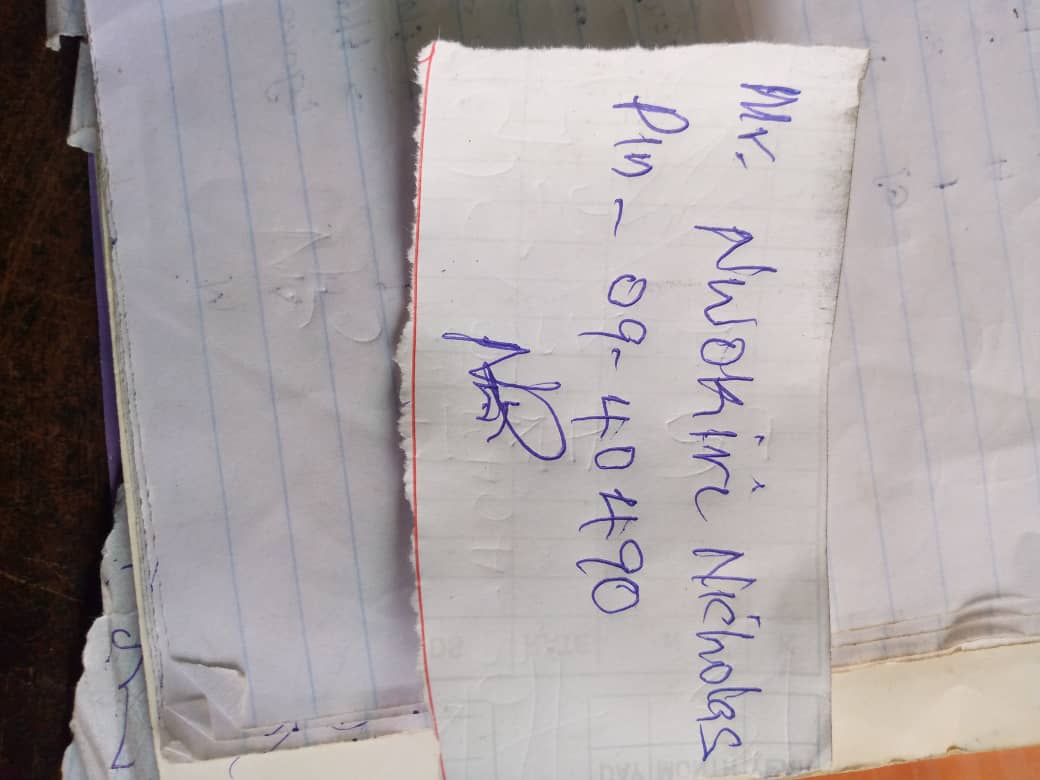 Mr. Nwokiri Nicholas
Pin - 09-40490